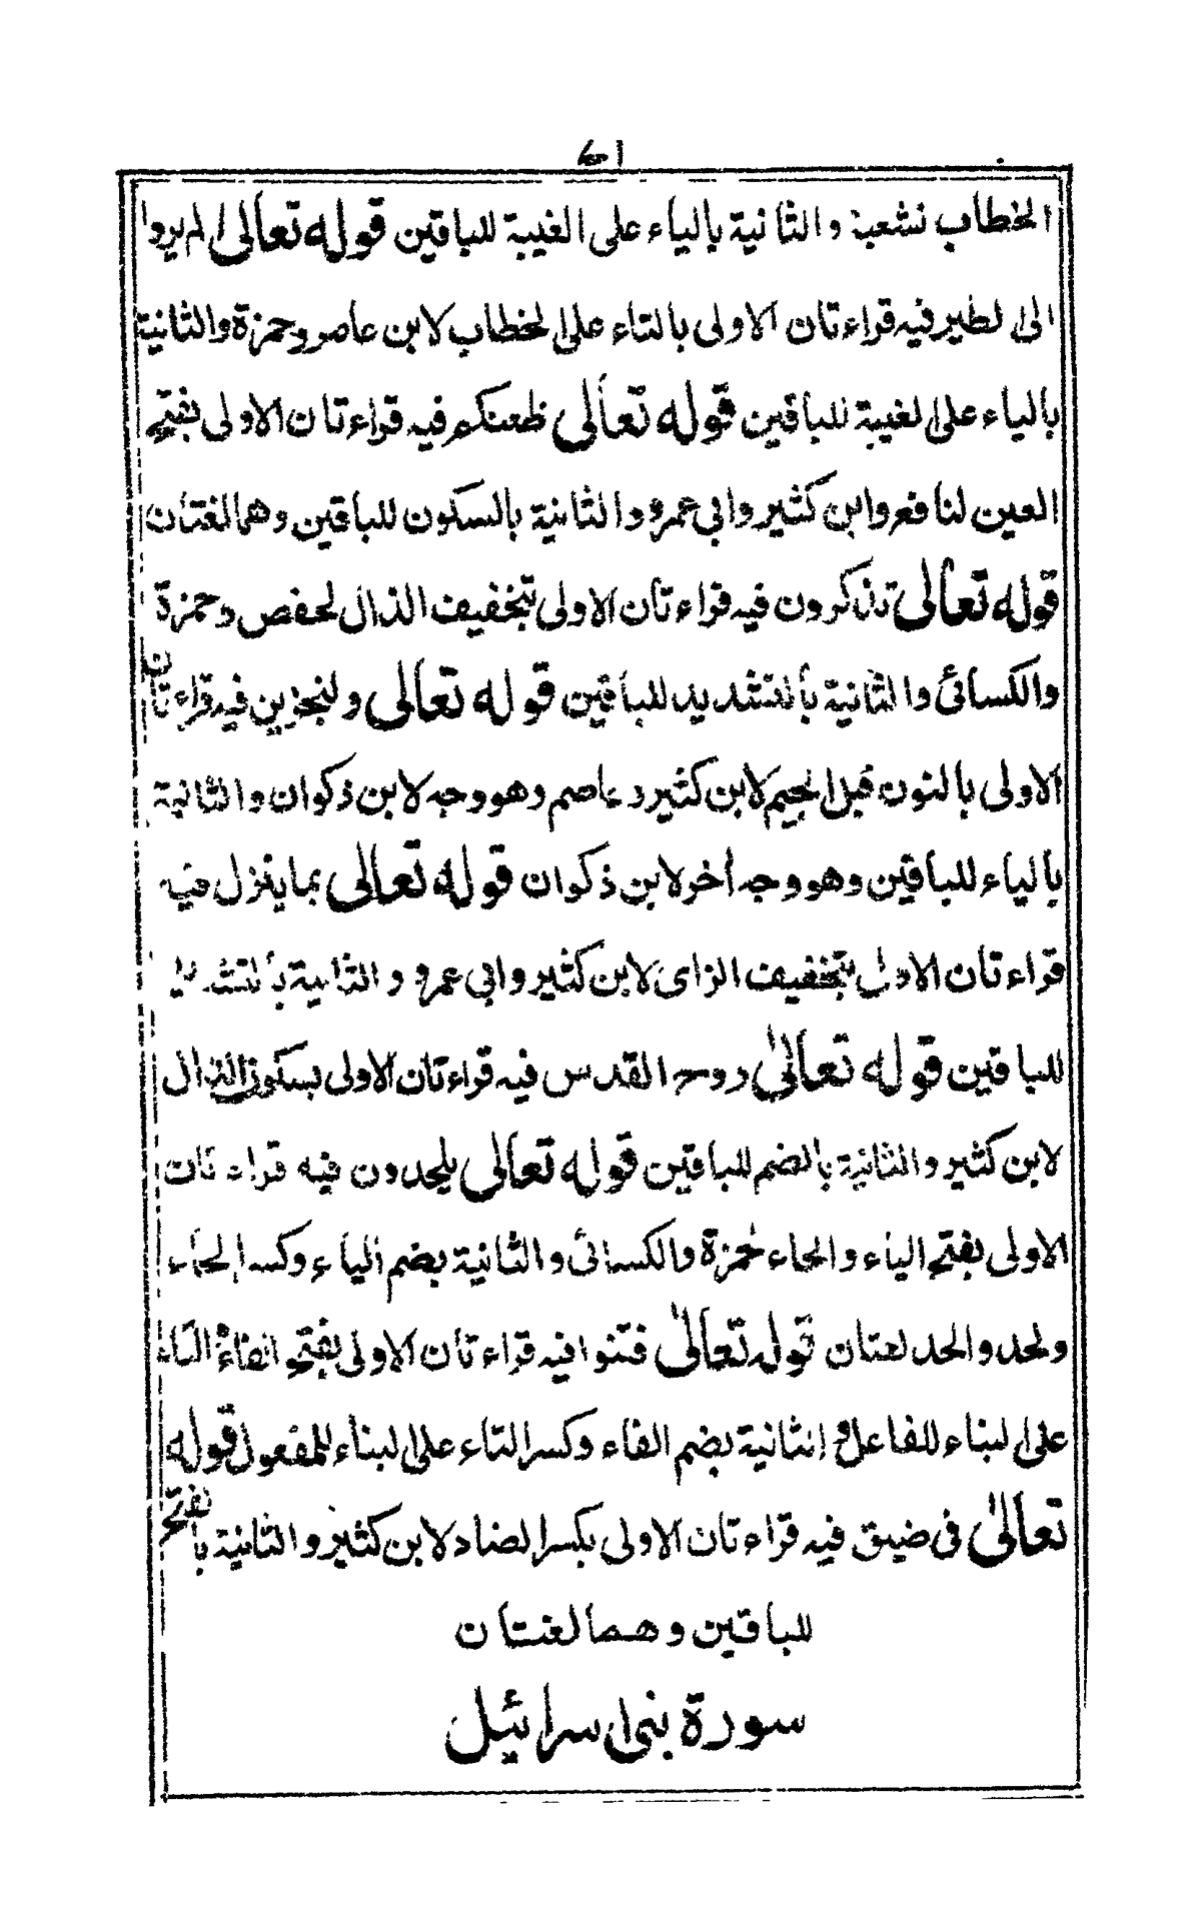 الخطاب لشعبة والثانية بالياء على الغيبة للباقين قوله تعالى الم يروا
الى الطير فيه قراءتان الاولى بالتاء على الخطاب لابن عامر وحمزة والثانية
بالياء على الغيبة للباقين قوله تعالى ظعنكم فيه قراءتان الاولى بفتح
العين لنافع وابن كثير وابي عمرو والثانية بالسكون للباقين وهما لغتان
قوله تعالى تذكرون فيه قراءتان الاولى بتخفيف الذال لحفص وحمزة
والكسائي والثانية بالتشديد للباقين قوله تعالى ولنجزين فيه قراءتان
الاولى بالنون قبل الجيم لابن كثير وعاصم وهو وجه لابن ذكوان والثانية
بالياء للباقين وهو وجه أخر لابن ذكوان قوله تعالى بما ينزل فيه
قراءتان الاولى بتخفيف الزاى لابن كثير وابي عمرو والثانية بالتشديد
للباقين قوله تعالىٰ روح القدس فيه قراءتان الاولى بسكون الدال
لابن كثير والثانية بالضم للباقين قوله تعالى يلحدون فيه قراءتان
الاولى بفتح الياء والحاء لحمزة والكسائى والثانية بضم الياء وكسر الحاء
ولحد والحد لغتان قوله تعالىٰ فتنوا فيه قراءتان الاولى بفتح الفاء و التاء
على البناء للفاعل و الثانية بضم الفاء وكسر التاء على البناء للمفعول قوله
تعالىٰ فى ضيق فيه قراءتان الاولى بكسر الضاد لابن كثير والثانية بالفتح
للباقين وهما لغتان
سورة بنى اسرائيل